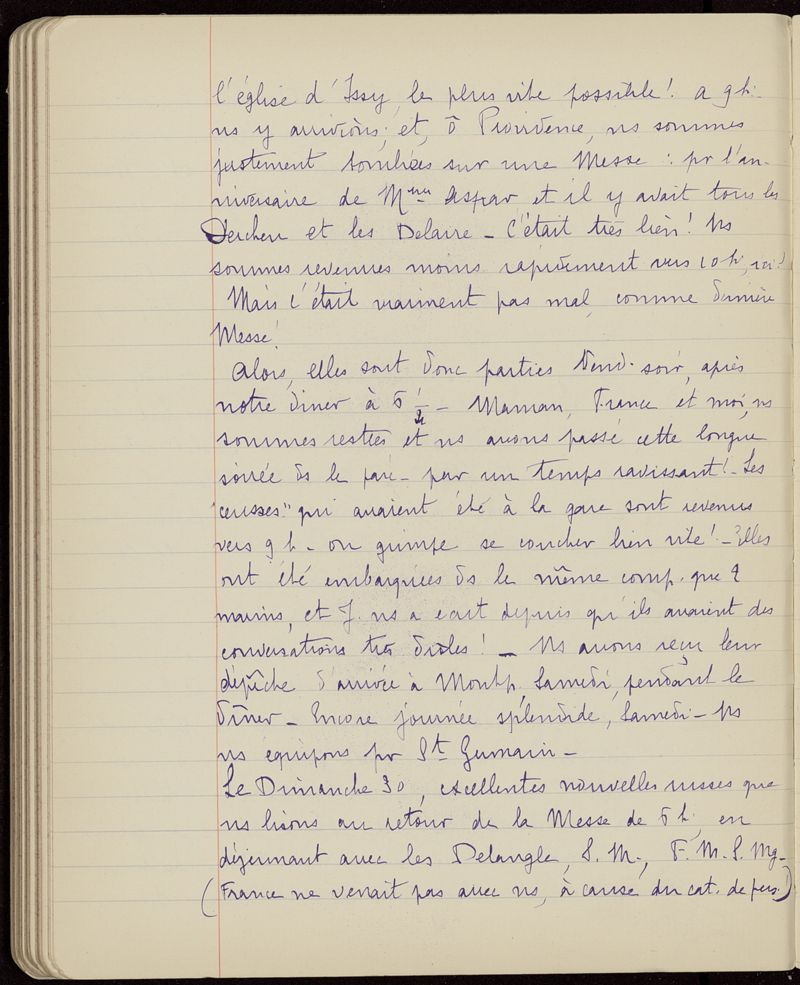 l'église d'Issy, le plus vite possible! a 9 h.
ns y arrivions; et, ô Providence, ns sommes
justement tombées sur une Messe : pr l'an-
niversaire de Mme et il y avait tous les
et les Delaire – C'était très bien! Ns
sommes revenues moins rapidement vers 10 h,
Mais c'était vraiment pas mal, comme dernière
Messe!
Alors, elles sont donc parties Vend. soir, après
notre dîner à 6 1/2 – Maman, France et moi, ns
sommes restées et ns avons passé cette longue
soirée ds le parc – par un temps ravissant! – Les
"" qui avaient été à la gare sont revenus
vers 9 h – on grimpe se coucher bien vite! – Elles
ont été embarquées ds le même comp. que 2
marins, et J. ns a écrit depuis qu'ils avaient des
conversations très drôles! – Ns avons reçu leur
dépêche d'arrivée à Montp. Samedi, pendant le
dîner – Encore journée splendide, Samedi – Ns
ns équipons pr St Germain –
Le Dimanche 30, excellentes nouvelles russes que
ns lisons au retour de la Messe de 6 h, en
déjeunant avec les Delangle, S. M., F. M. S. Mg –
(France ne venait pas avec ns, à cause du cat. de pers.!)